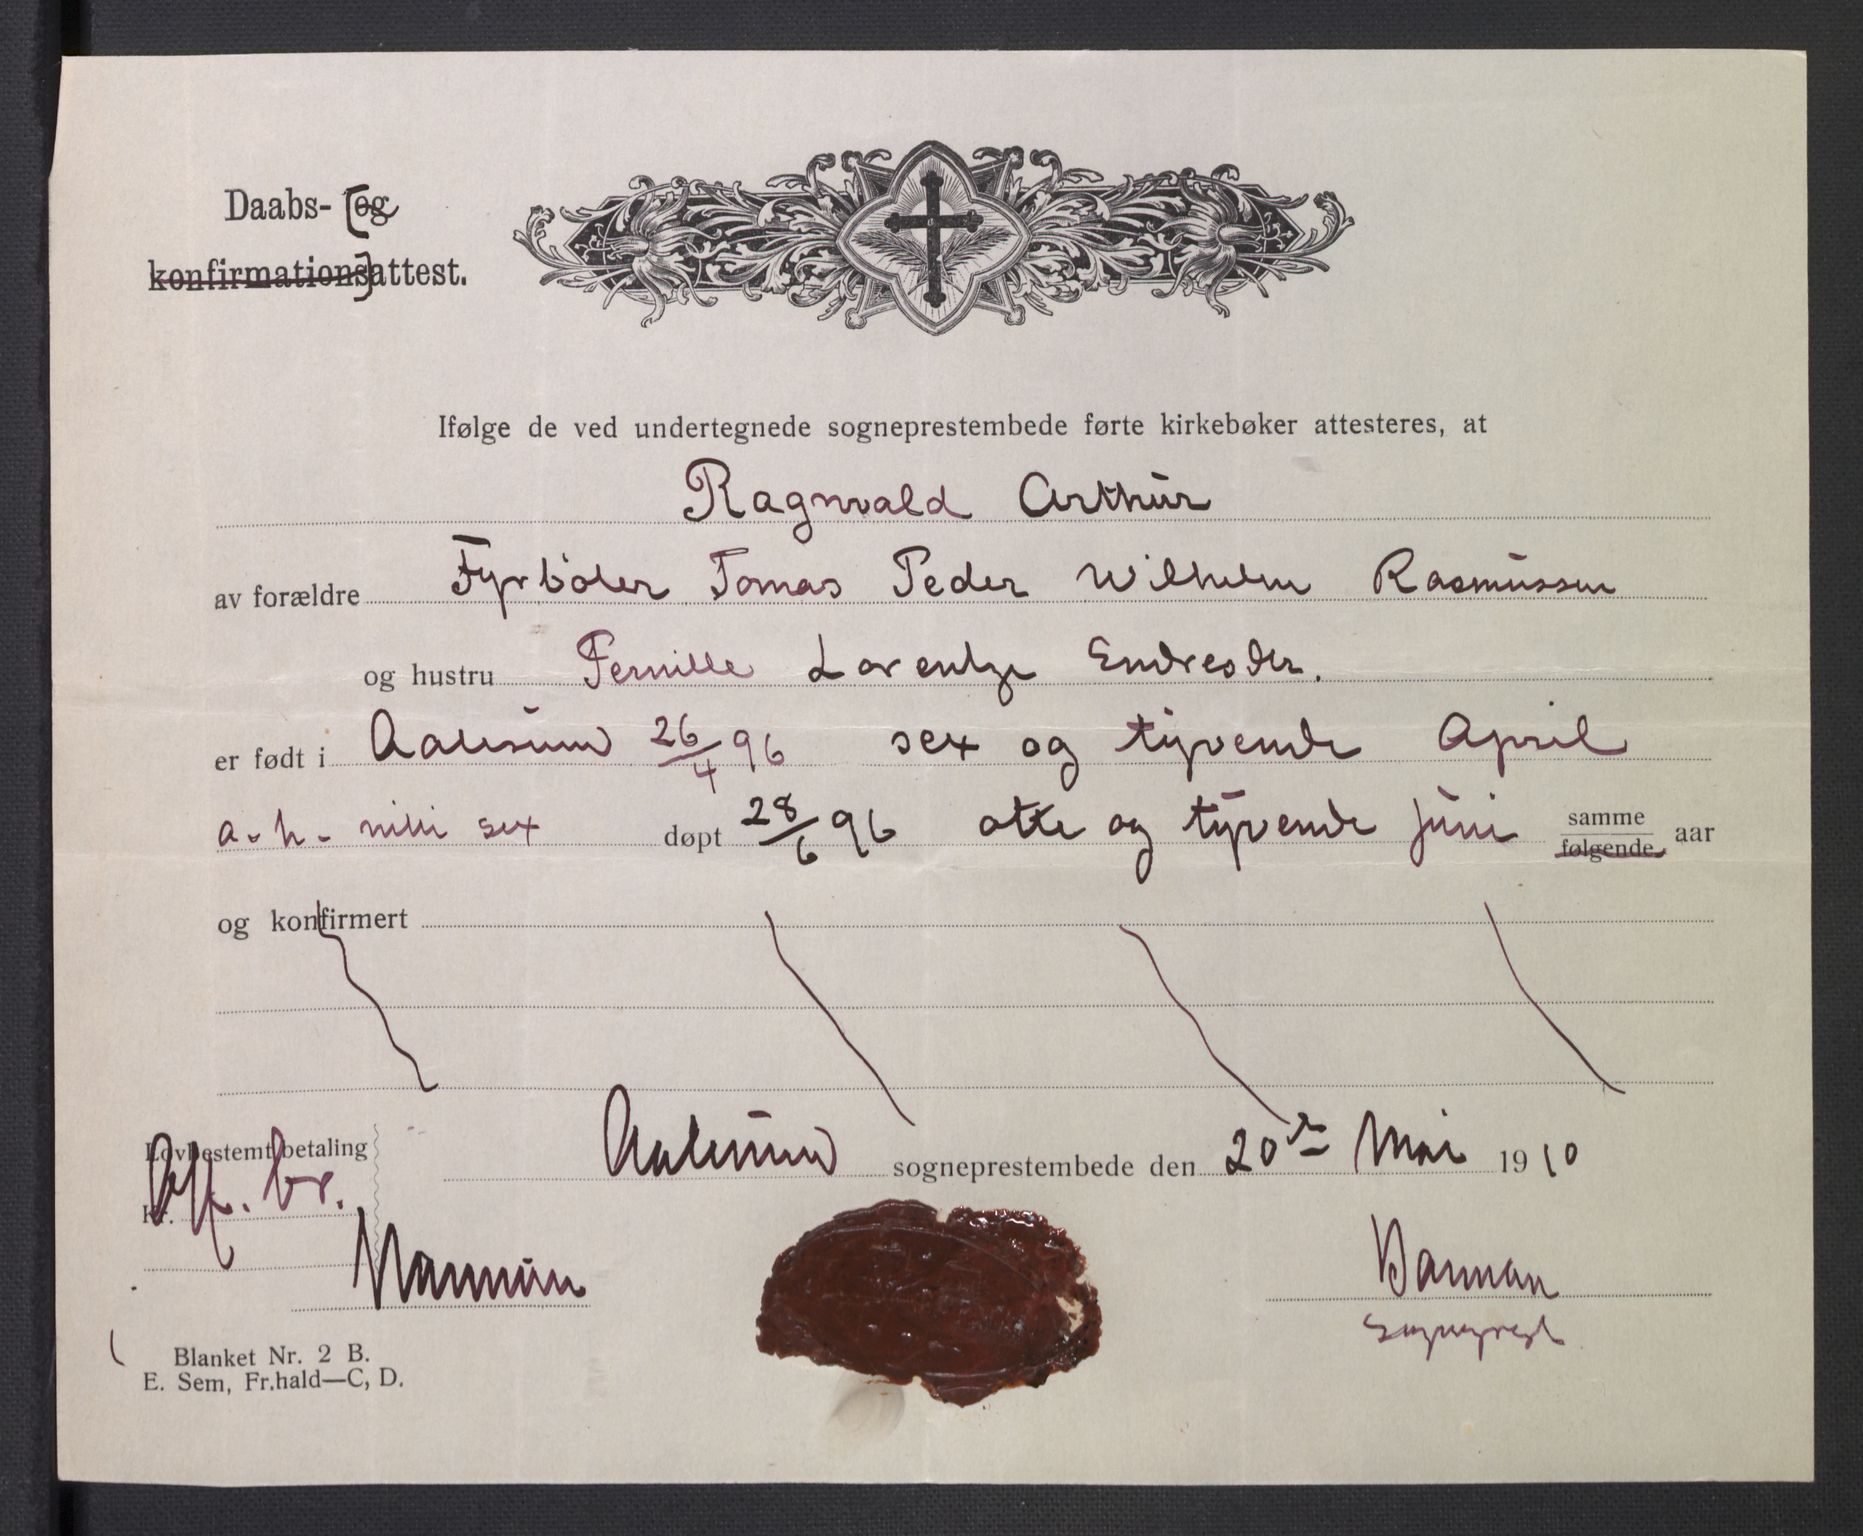 Daabs- [og
konfirmations]attest.
Ifølge de ved undertegnede sogneprestembede førte kirkebøker attesteres, at
Ragnvald Arthur
av forældre Fyrbøter Tomas Peder Wilhelm Rasmussen
og hustru Pernille Lorentze Endresdtr.
er født i Aalesund 26/4 96 sex og tyvende April
a. h. nitti sex døpt 28/6 96 otte og tyvende juni samme følgende aar
og konfirmert
Aalesund sogneprestembede den 20de Mai 1910
Lovbestemt betaling
Kr. Off. br.
Blanket Nr. 2 B.
E. Sem, Fr.hald—C, D.
Sogneprest